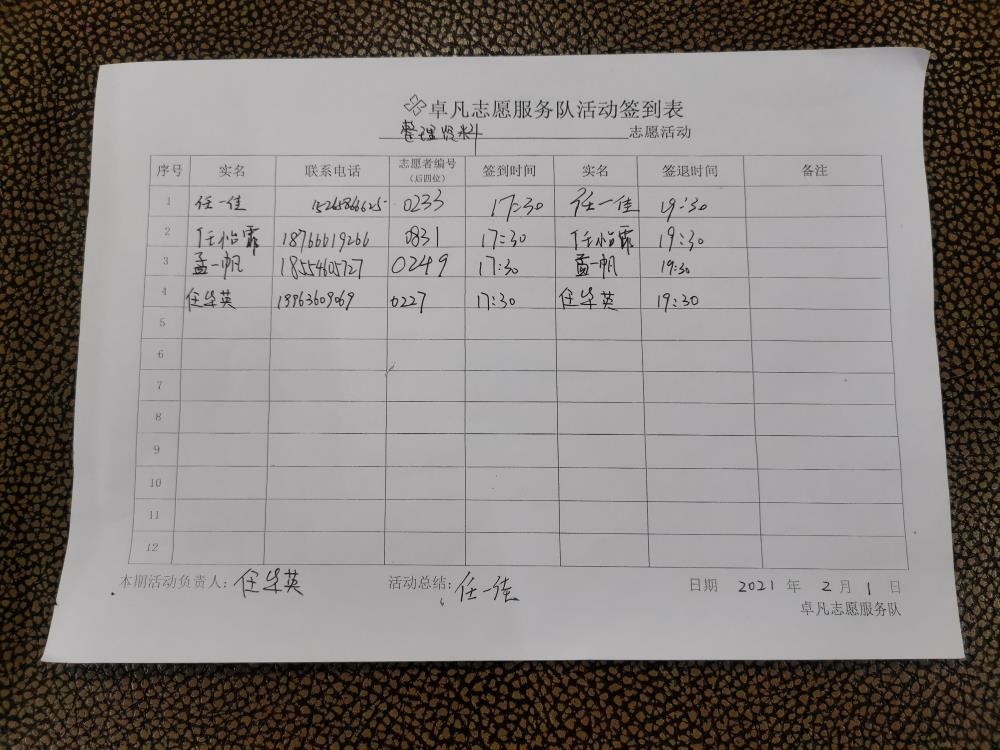 卓凡志愿服务队活动签到表
整理资料 志愿活动
序号 实名 联系电话 志愿者编号（后四位） 签到时间 实名 签退时间 备注
1 任一佳 15265866625 0233 17:30 任一佳 19:30
2 任怡霏 18766619266 0831 17:30 任怡霏 19:30
3 孟一帆 18554605727 0249 17:30 孟一帆 19:30
4 任华英 19963609069 0227 17:30 任华英 19:30
5
6
7
8
9
10
11
12
本期活动负责人：任华英 活动总结：任一佳 日期 2021 年 2 月 1 日
卓凡志愿服务队